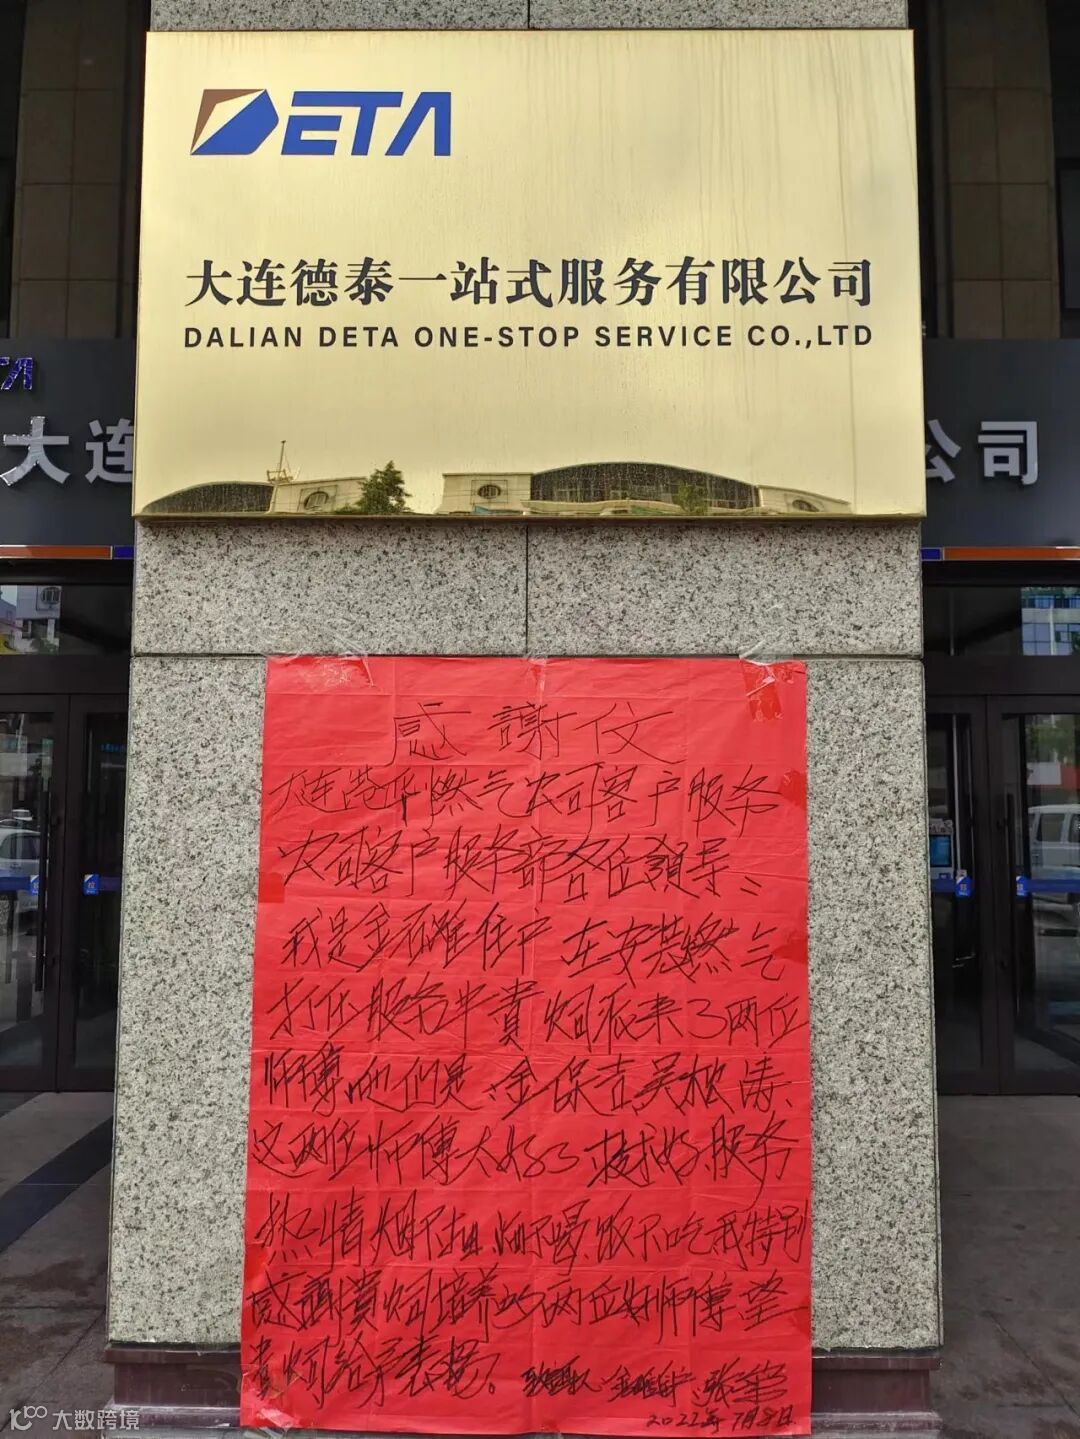 DETA
大连德泰一站式服务有限公司
DALIAN DETA ONE-STOP SERVICE CO.,LTD
TA
大连
公司
感謝位
大连港华燃气公司客户服务
公司客户服务部各位領导:
我是金石滩住户 在安装燃气
打任服务中貴公司派来了两位
师傅他们是:金保吉吴松涛、
这两位师傅太好了.技术好.服务
热情烟不抽.水不喝.饭不吃我特别
感謝貴公司培养的两位好师傅望
貴公司给予表揚!
致謝人
2022年7月8日
大数跨境